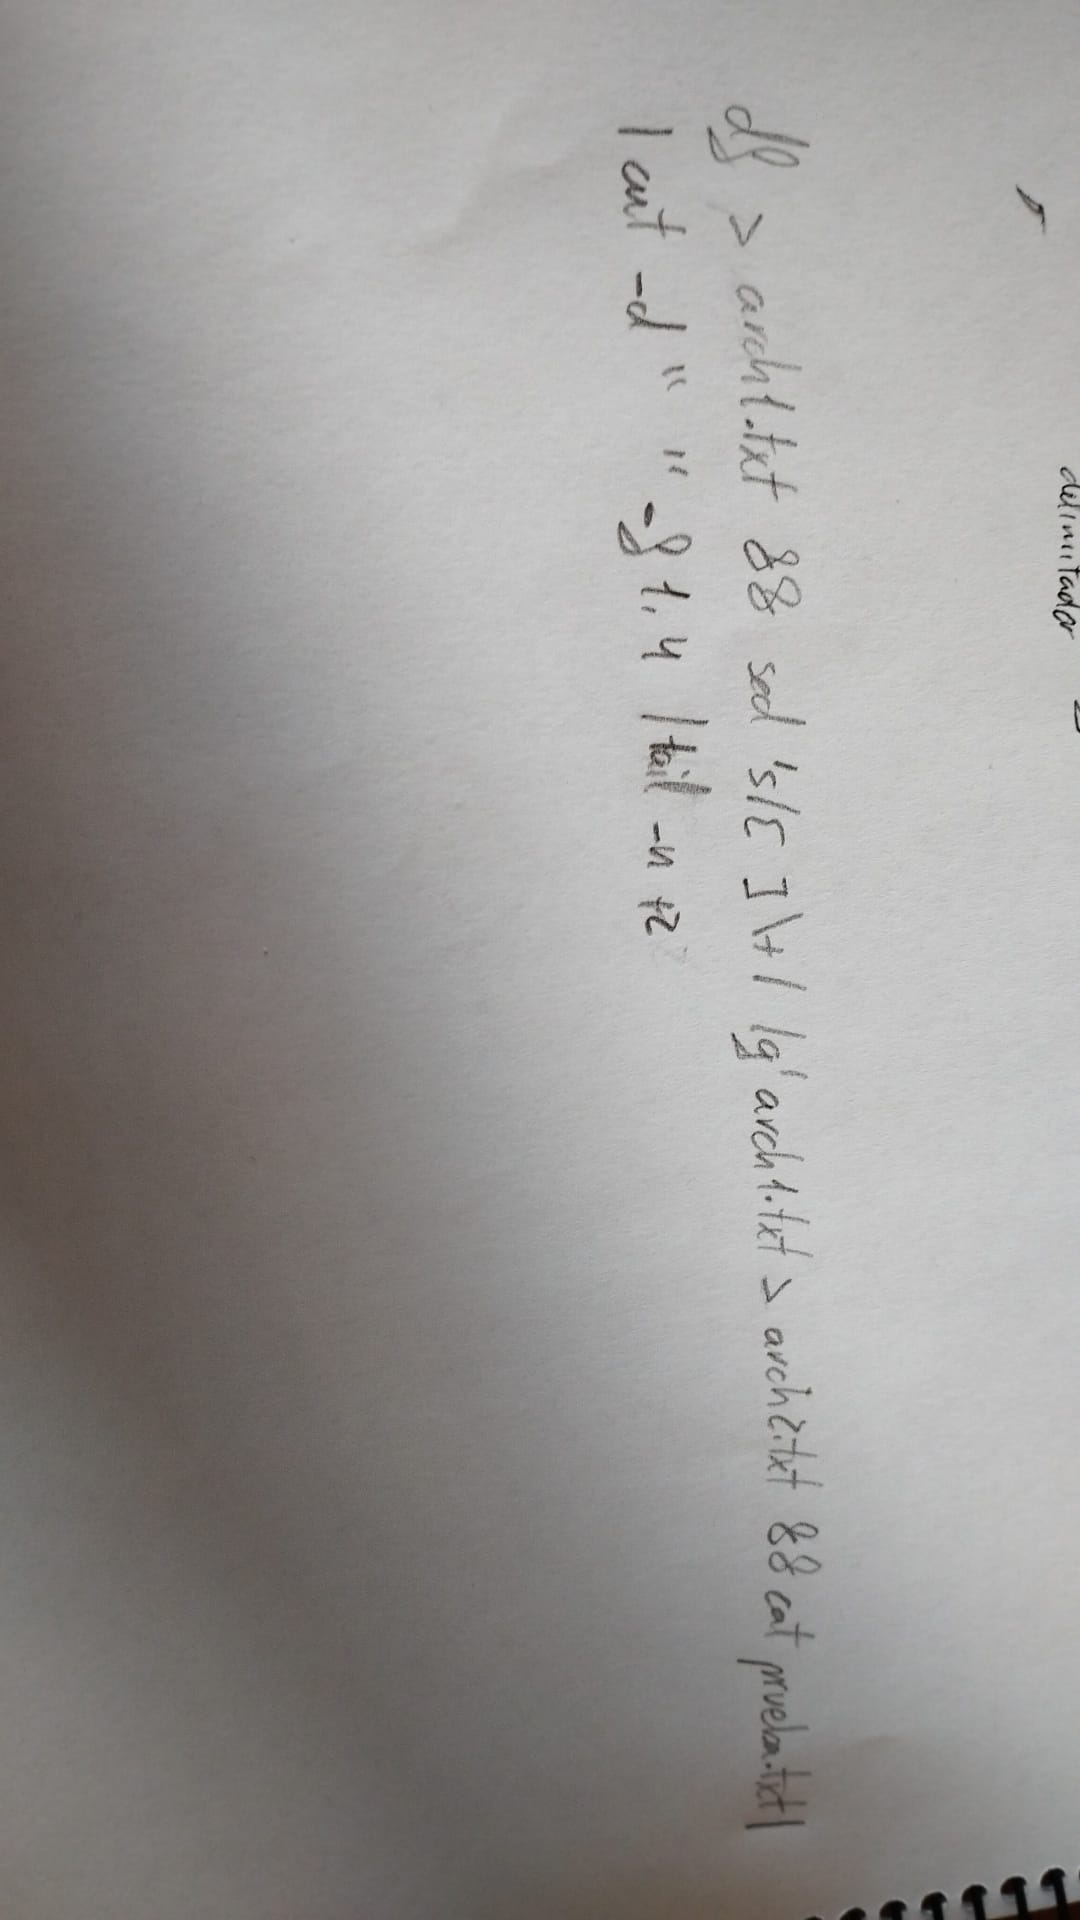 delimitador
df > arch1.txt && sed 's/[ ]\+/ /g' arch1.txt > arch2.txt && cat prueba.txt |
| cut -d " " -f 1,4 | tail -n +2